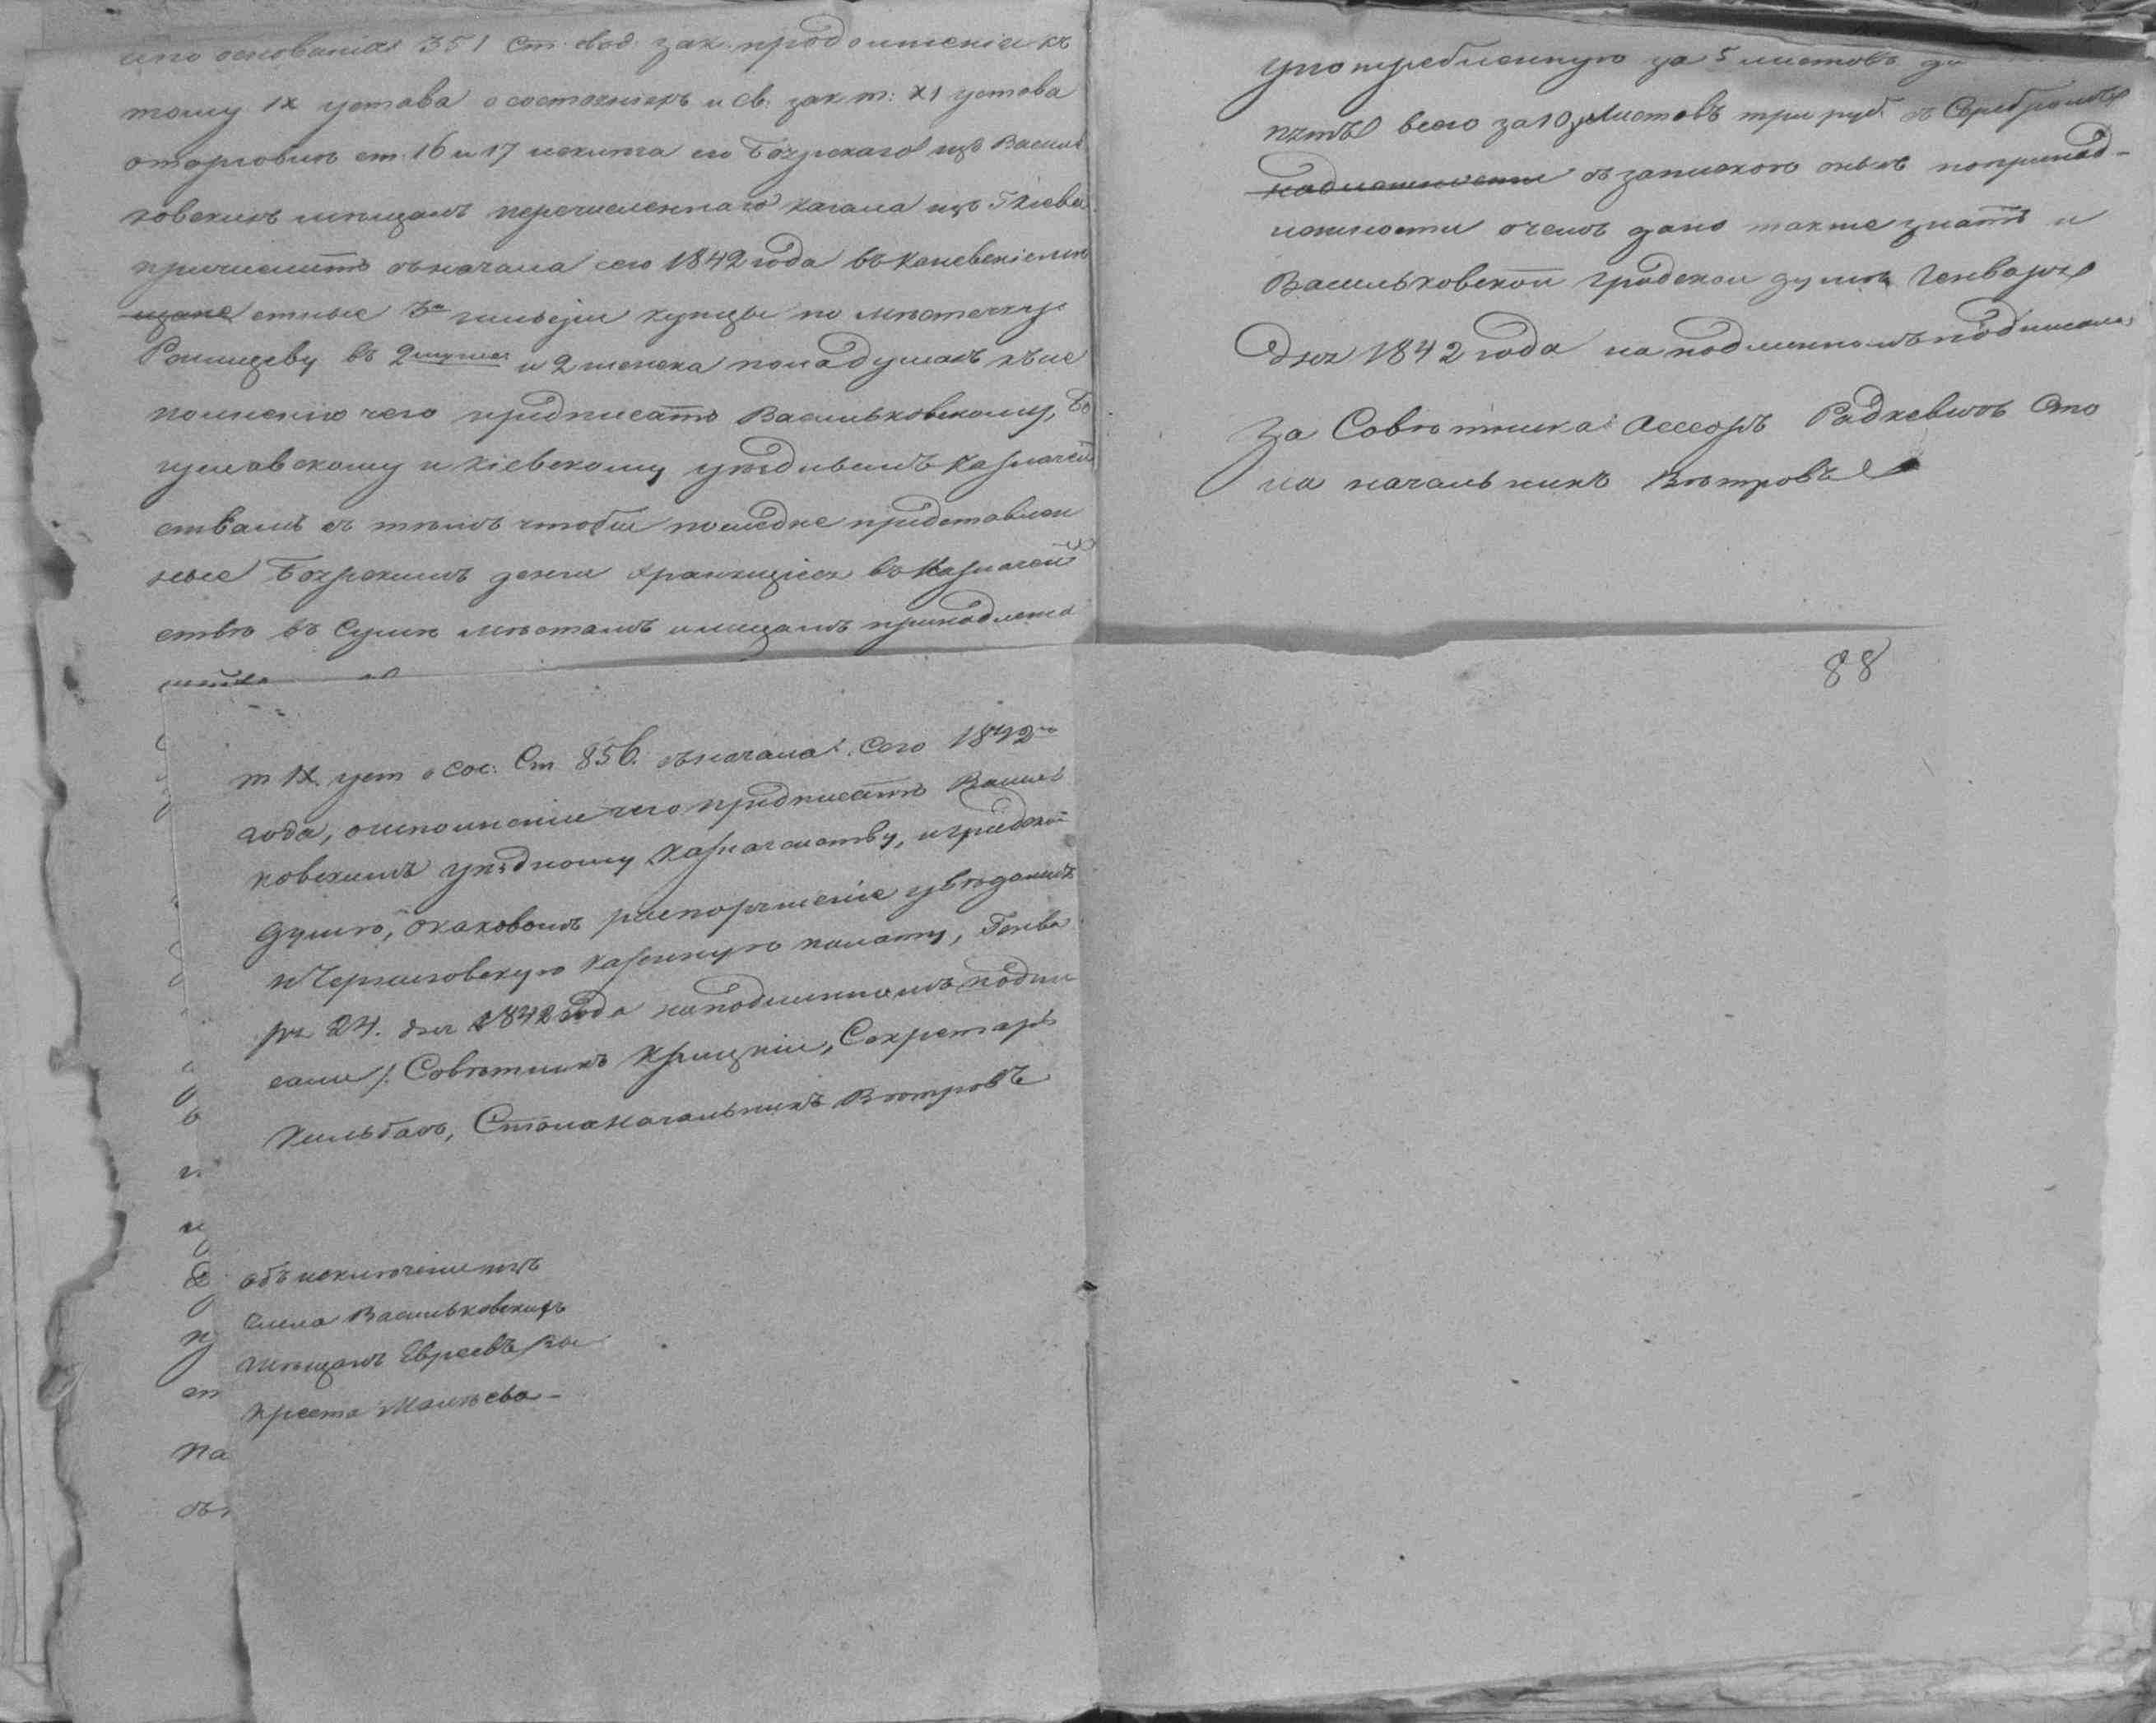 основании 351 ст. свод. зак. продолжения къ
тому IX устава о состоянияхъ и св: зак. т: XI устава
о торговле ст. 16 и 17 исключа его Бохрскаго изъ Василь
ковскихъ мещанъ перечисленнаго кагала изъ Киева
причислить съ начала сего 1842 года въ Каневские
щане 3й гильдии купцы по местечку
въ 2 муж. и 2 женска пола душахъ къ ис
полнению чего предписать Васильковскому, Бо
гуславскому и Киевскому уезднымъ казначей
ствамъ съ темъ чтобы последне представлен
ные Бохрскимъ денги хранящиеся въ Казначей
стве въ сумме местамъ и лицамъ принадлежа
т IX уст о сос: Ст 856. съ начала сего 1842го
года, о исполнении чего предписать Василь
ковскимъ уездному казначейству, и градской
думе, о каковомъ распоряжение уведомить
и Черниговскую казенную палату, Генва
ря 24. дня 1842 года на подлинномъ подпи
сали /: Советникъ Крицкий, Секретарь
Кильбахъ, Столаначальникъ Ветровъ
объ исключении изъ
числа Васильковскихъ
мещанъ Евреевъ вы
креста Малеева -
употребленную за 5 листовъ
пять всего за 10 листовъ три руб. съ серебромъ
съ запискою оныхъ по принад-
лежности о чемъ дано также знать и
Васильковской градской думе Генваря
дня 1842 года на подлинномъ подписали
За Советника Асессоръ Радкевичъ Сто
ла начальникъ Ветровъ
88